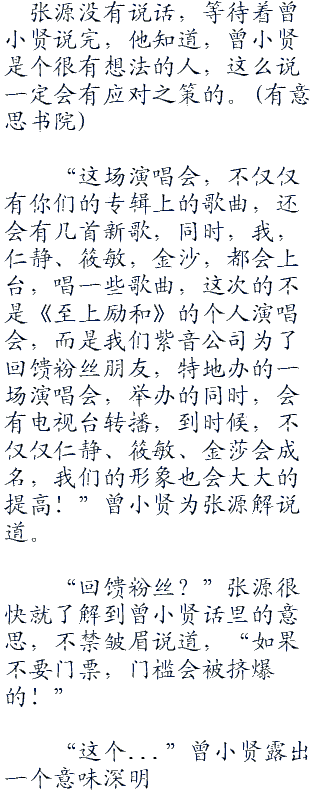 张源没有说话，等待着曾
小贤说完，他知道，曾小贤
是个很有想法的人，这么说
一定会有应对之策的。(有意
思书院)
“这场演唱会，不仅仅
有你们的专辑上的歌曲，还
会有几首新歌，同时，我，
仁静、筱敏，金沙，都会上
台，唱一些歌曲，这次的不
是《至上励和》的个人演唱
会，而是我们紫音公司为了
回馈粉丝朋友，特地办的一
场演唱会，举办的同时，会
有电视台转播，到时候，不
仅仅仁静、筱敏、金莎会成
名，我们的形象也会大大的
提高！”曾小贤为张源解说
道。
“回馈粉丝？”张源很
快就了解到曾小贤话里的意
思，不禁皱眉说道，“如果
不要门票，门槛会被挤爆
的！”
“这个...”曾小贤露出
一个意味深明